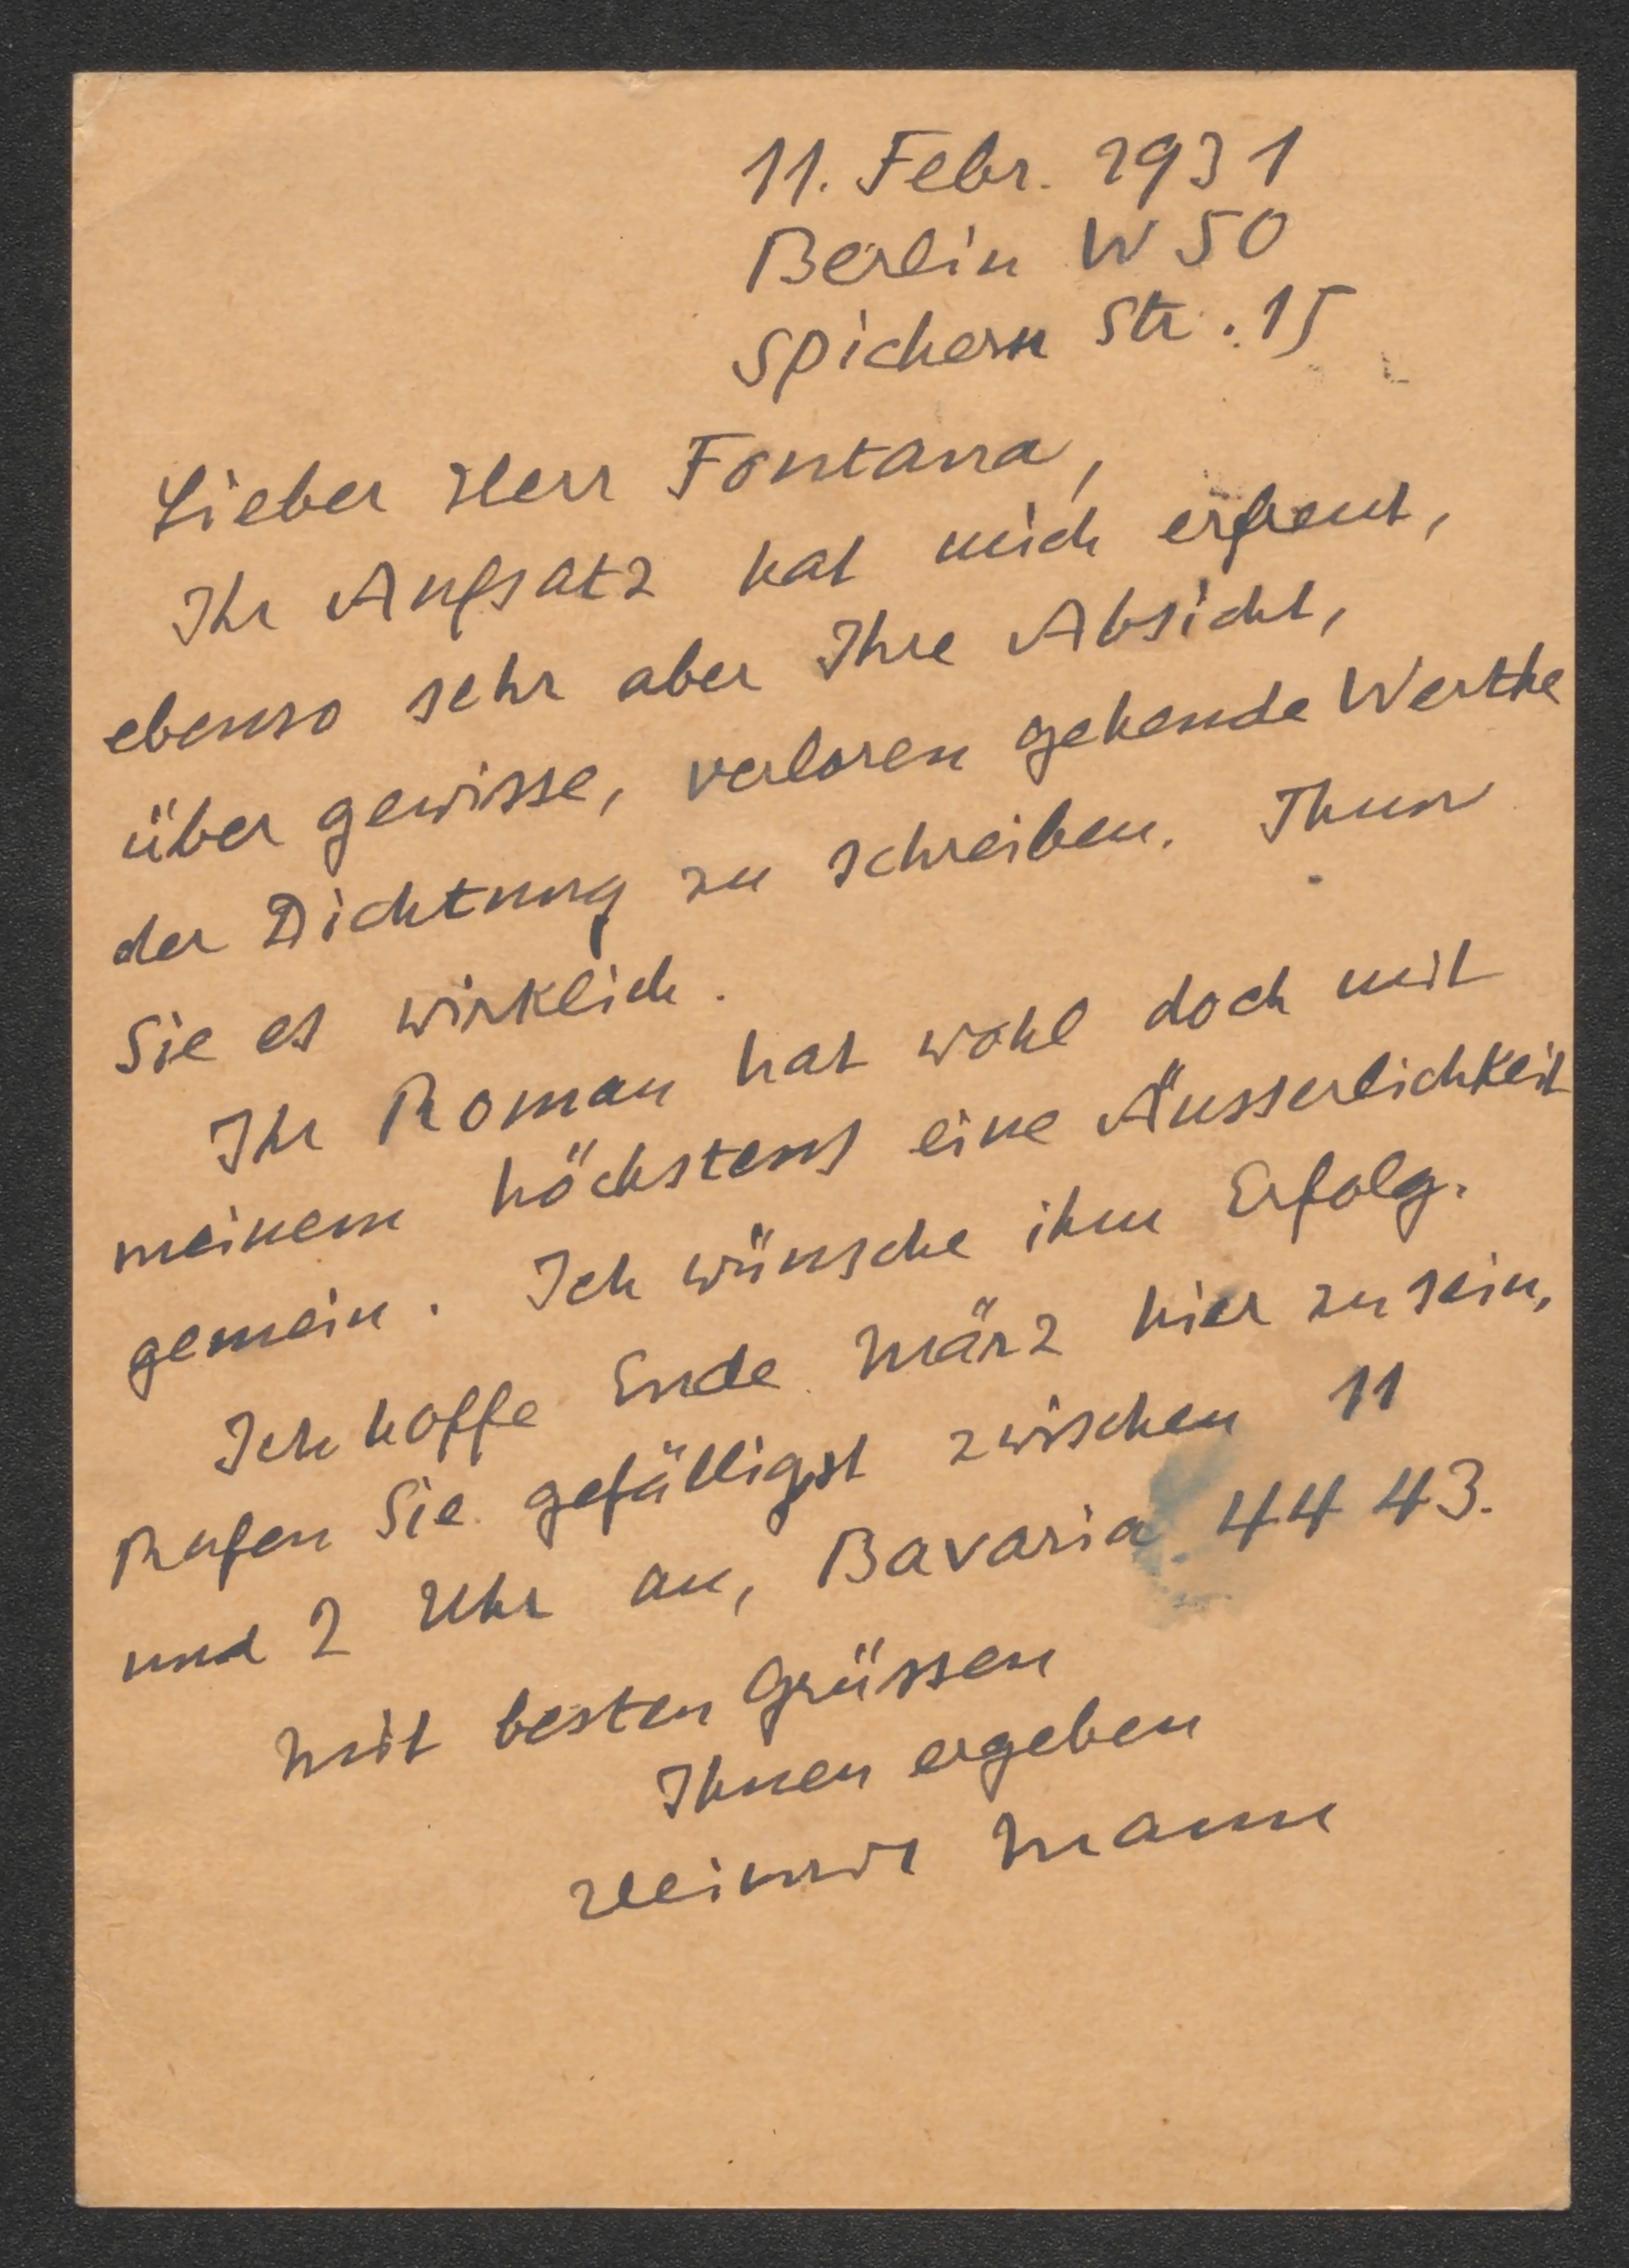 11. Febr. 1931
Berlin W 50
Spichern Str. 15
Lieber Herr Fontana,
Ihr Aufsatz hat mich erfreut,
ebenso sehr aber Ihre Absicht,
über gewisse, verloren gehende Werthe
der Dichtung zu schreiben. Thun
Sie es wirklich.
Ihr Roman hat wohl doch mit
meinem höchstens eine Äusserlichkeit
gemein. Ich wünsche ihm Erfolg.
Ich hoffe Ende März hier zu sein,
Rufen Sie gefälligst zwischen 11
und 2 Uhr an, Bavaria 44 43.
Mit besten Grüssen
Ihnen ergeben
Heinrich Mann